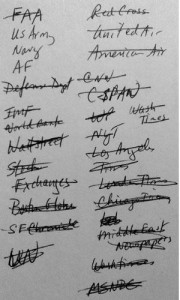 FAA
US Army
Navy
AF
Defense Dept
IMF
World Bank
Wallstreet
Stock
Exchanges
Boston Globe
SF Chronicle
UN
Red Cross
United Air
American Air
CNN
CSPAN
WP Wash
Times
NYT
Los Angeles
Times
London Times
Chicago Times
Middle East
Newspapers
Wash Times
MSNBC